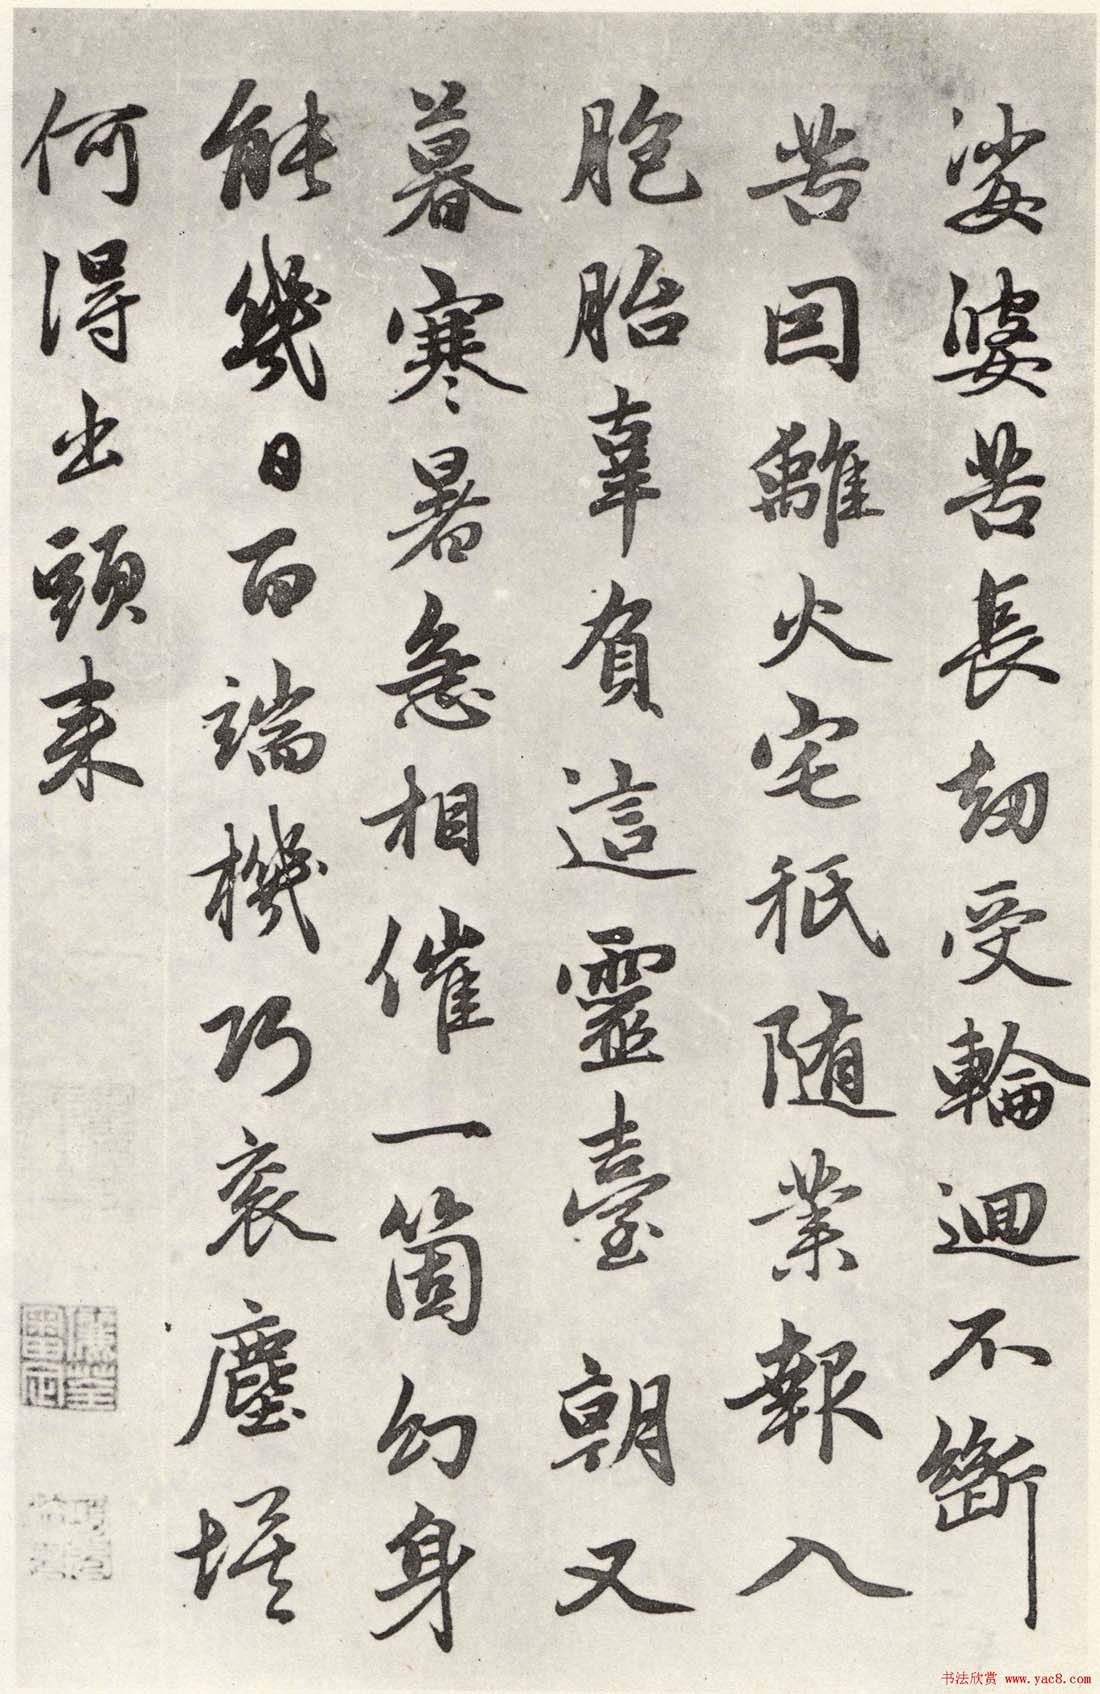 娑婆苦長劫受輪迴不斷
苦因離火宅秖随業報入
胞胎辜負這靈臺朝又
暮寒暑急相催一箇幻身
能幾日百端機巧衮塵埃
何得出頭来
书法欣赏 www.yac8.com